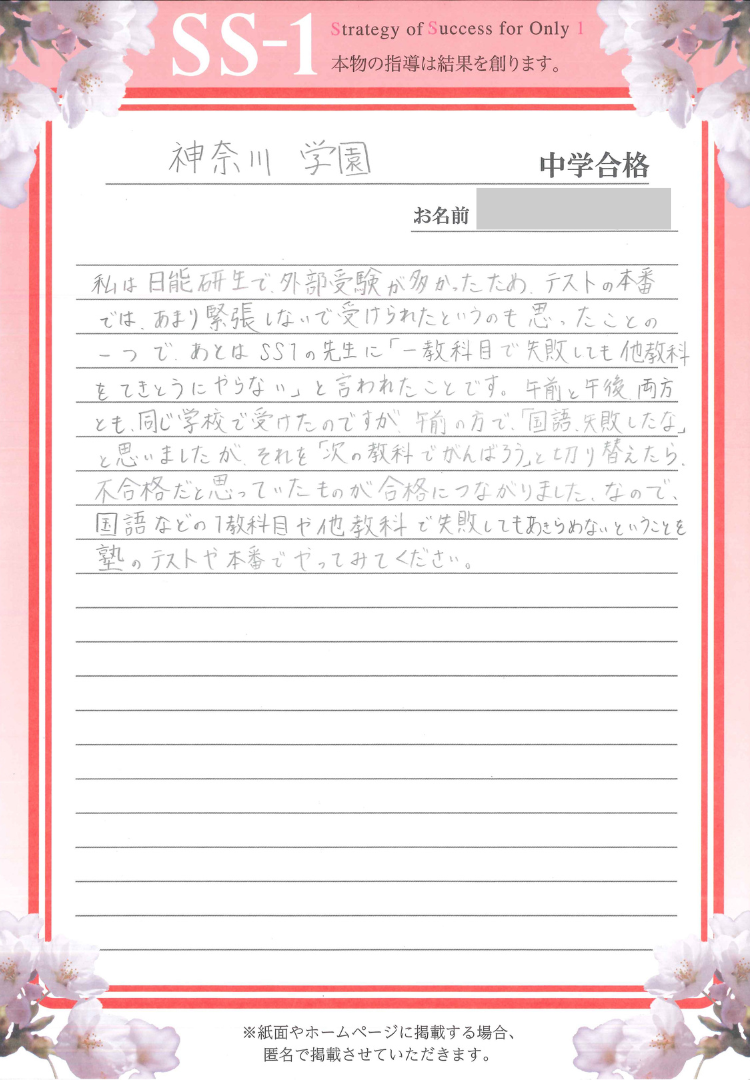 SS-1
Strategy of Success for Only 1
本物の指導は結果を創ります。
神奈川 学園
中学合格
お名前
私は日能研生で、外部受験が多かったため、テストの本番
では、あまり緊張しないで受けられたというのも思ったことの
一つで、あとはSS1の先生に「一教科目で失敗しても他教科
をてきとうにやらない」と言われたことです。午前と午後、両方
とも、同じ学校で受けたのですが、午前の方で、「国語、失敗したな」
と思いましたが、それを「次の教科でがんばろう」と切り替えたら、
不合格だと思っていたものが合格につながりました、なので、
国語などの1教科目や他教科で失敗してもあきらめないということを
塾のテストや本番でやってみてください。
※紙面やホームページに掲載する場合、
匿名で掲載させていただきます。